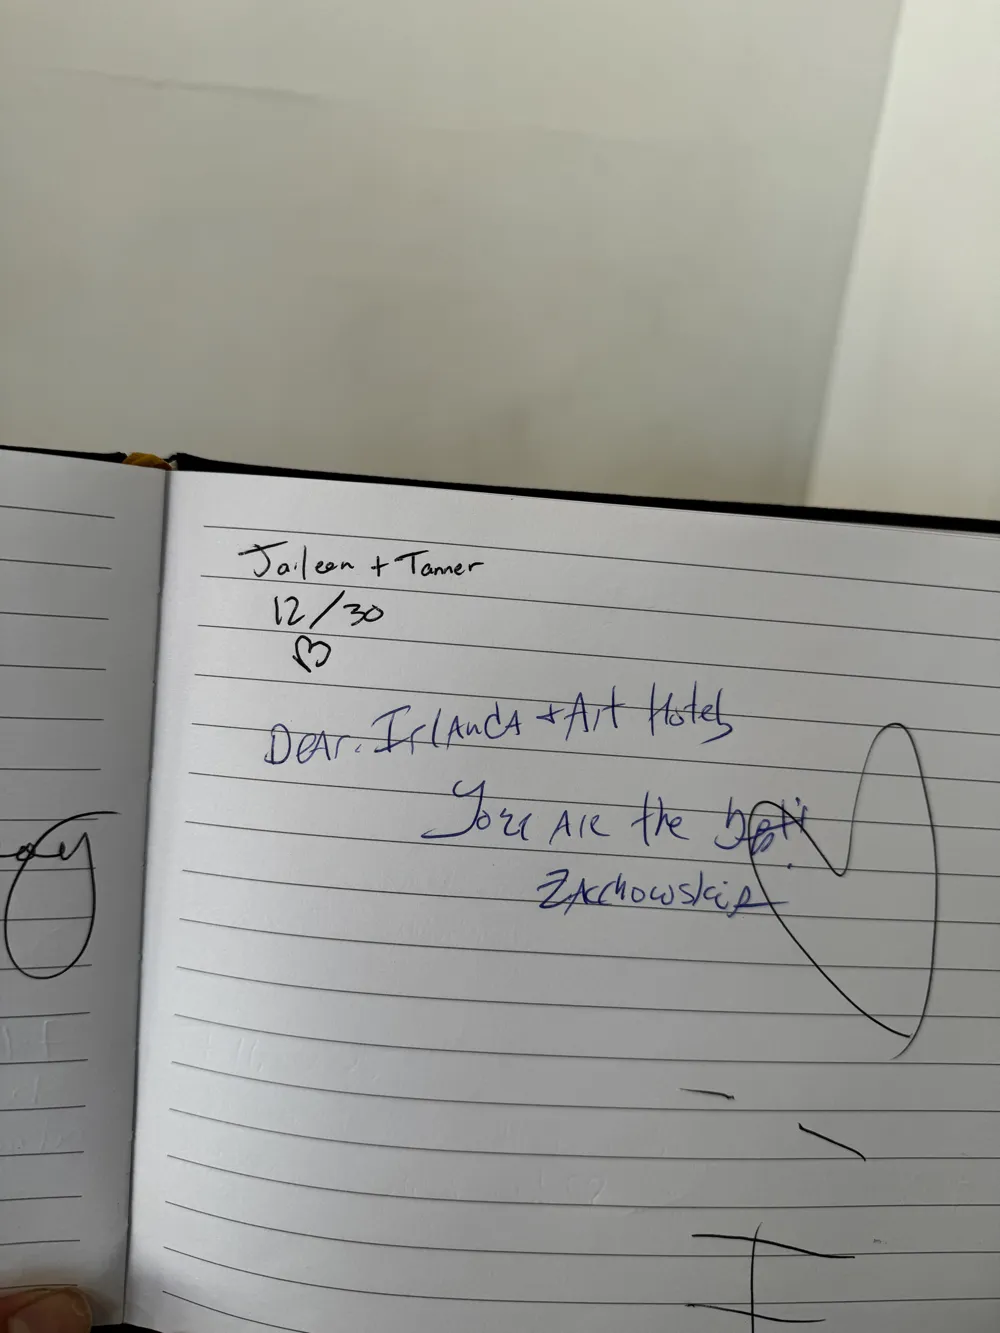 Jaileen + Tanner
12/30
Dear. Irlanda + Art Hotels
You are the best!
Zacchowskie